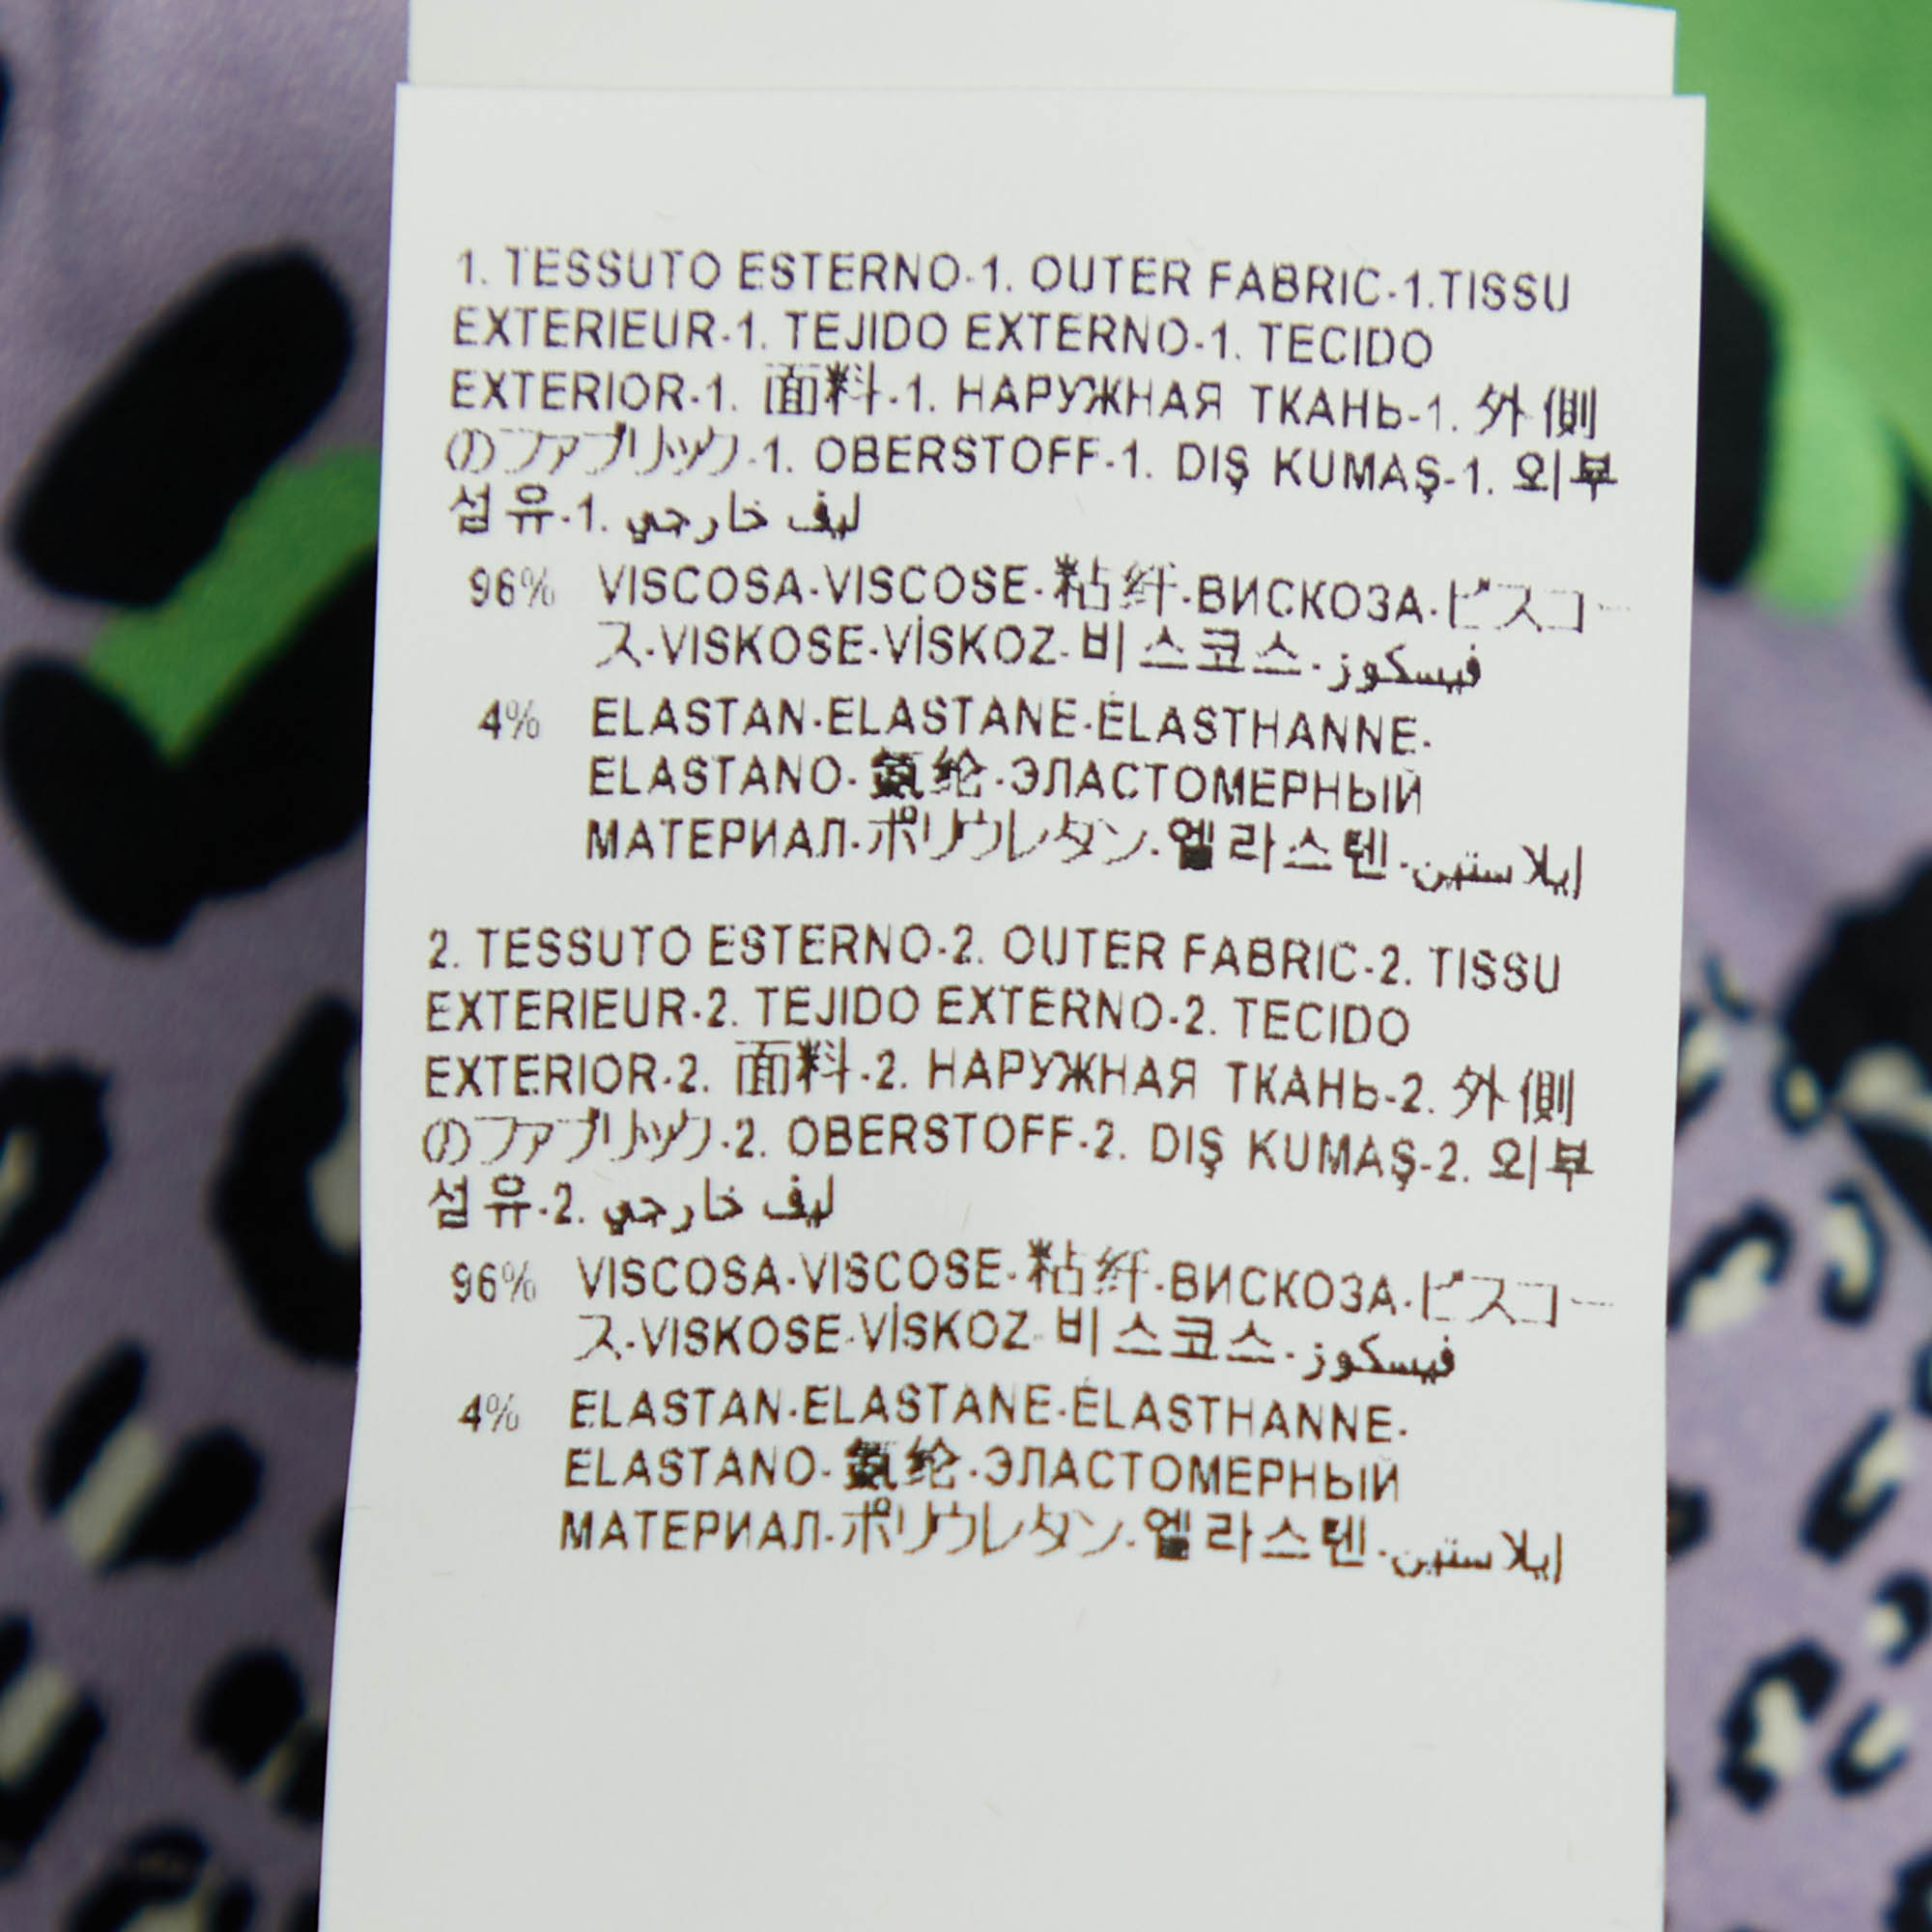 1. TESSUTO ESTERNO-1. OUTER FABRIC-1.TISSU
EXTERIEUR-1. TEJIDO EXTERNO-1. TECIDO
EXTERIOR-1. 面料-1. НАРУЖНАЯ ТКАНЬ-1. 外側
のファブリック-1. OBERSTOFF-1. DIŞ KUMAŞ-1. 외부
섬유-1. ليف خارجي
96% VISCOSA-VISCOSE-粘纤-ВИСКОЗА-ビスコー
ス-VISKOSE-VİSKOZ-비스코스-فيسكوز
4% ELASTAN-ELASTANE-ÉLASTHANNE-
ELASTANO-氨纶-ЭЛАСТОМЕРНЫЙ
МАТЕРИАЛ-ポリウレタン-엘라스텐-ايلاستين
2. TESSUTO ESTERNO-2. OUTER FABRIC-2. TISSU
EXTERIEUR-2. TEJIDO EXTERNO-2. TECIDO
EXTERIOR-2. 面料-2. НАРУЖНАЯ ТКАНЬ-2. 外側
のファブリック-2. OBERSTOFF-2. DIŞ KUMAŞ-2. 외부
섬유-2. ليف خارجي
96% VISCOSA-VISCOSE-粘纤-ВИСКОЗА-ビスコー
ス-VISKOSE-VİSKOZ-비스코스-فيسكوز
4% ELASTAN-ELASTANE-ÉLASTHANNE-
ELASTANO-氨纶-ЭЛАСТОМЕРНЫЙ
МАТЕРИАЛ-ポリウレタン-엘라스텐-ايلاستين